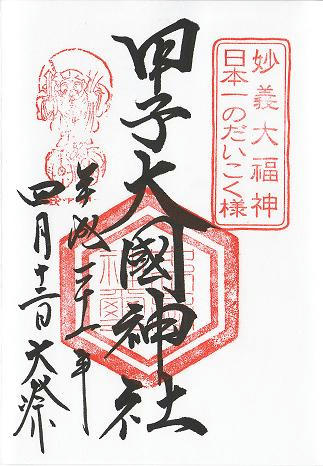 妙義大福神
日本一のだいこく様
甲子大國神社
平成三十一年
四月十三日大祭